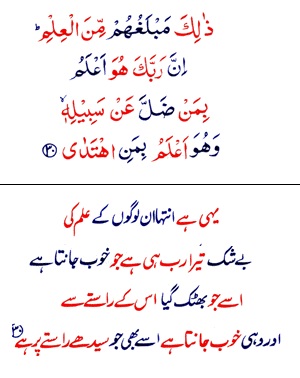 ذٰلِكَ مَبْلَغُهُمْ مِّنَ الْعِلْمِ ؕ
اِنَّ رَبَّكَ هُوَ اَعْلَمُ
بِمَنْ ضَلَّ عَنْ سَبِيْلِهٖ ۙ
وَهُوَ اَعْلَمُ بِمَنِ اهْتَدٰى ﴿۳۰﴾
یہی ہے انتہا ان لوگوں کے علم کی
بے شک تیرا رب ہی ہے جو خوب جانتا ہے
اسے جو بھٹک گیا اس کے راستے سے
اور وہی خوب جانتا ہے اسے بھی جو سیدھے راستے پر ہے ﴿۳۰﴾